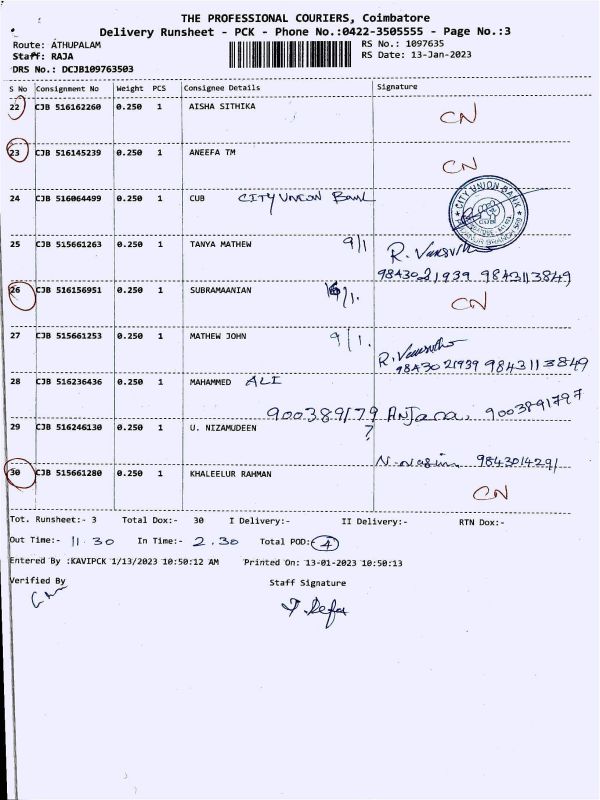 THE PROFESSIONAL COURIERS, Coimbatore
Delivery Runsheet - PCK - Phone No.:0422-3505555 - Page No.:3
Route: ATHUPALAM
RS No.: 1097635
Staff: RAJA
RS Date: 13-Jan-2023
DRS No.: DCJB109763503
S No Consignment No Weight PCS Consignee Details Signature
22 CJB 516162260 0.250 1 AISHA SITHIKA CN
23 CJB 516145239 0.250 1 ANEEFA TM CN
24 CJB 516064499 0.250 1 CUB CITY UNION Bank
CITY UNION BANK
CUB
25 CJB 515661263 0.250 1 TANYA MATHEW 9/1 R.
9843021939 9843113849
26 CJB 516156951 0.250 1 SUBRAMAANIAN /1. CN
27 CJB 515661253 0.250 1 MATHEW JOHN 9/1. R.
9843021939 9843113849
28 CJB 516236436 0.250 1 MAHAMMED ALI
900389179 Anjana, 9003891797
29 CJB 516246130 0.250 1 U. NIZAMUDEEN ?
9843014291
30 CJB 515661280 0.250 1 KHALEELUR RAHMAN CN
Tot. Runsheet:- 3 Total Dox:- 30 I Delivery:- II Delivery:- RTN Dox:-
Out Time:- 11.30 In Time:- 2.30 Total POD:- 4
Entered By :KAVIPCK 1/13/2023 10:50:12 AM Printed On: 13-01-2023 10:50:13
Verified By Staff Signature